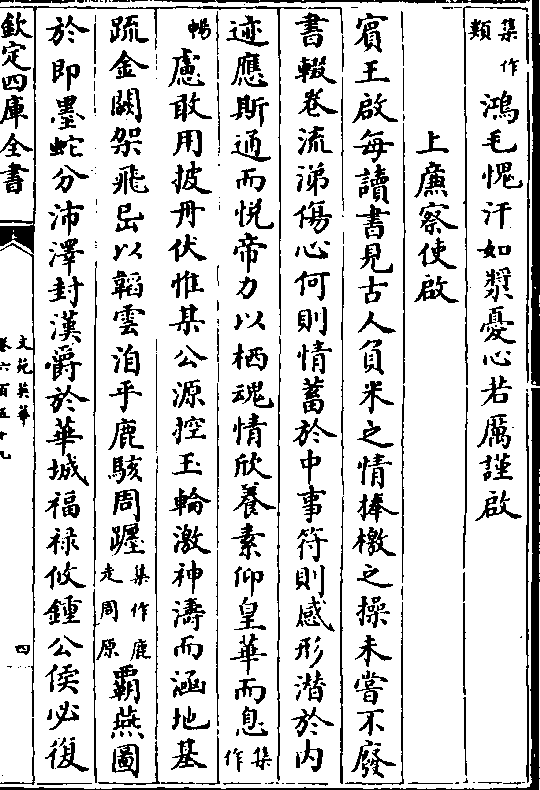 集作類鴻毛愧汗如漿憂心若厲謹啟
上廉察使啟
賓王啟每讀書見古人負米之情捧檄之操未嘗不廢
書輟卷流涕傷心何則情蓄於中事符則感形潛於内
迹應斯通而悦帝力以栖魂情欣養素仰皇華而息集作
暢慮敢用披丹伏惟某公源控玉輪激神濤而涵地基
疏金闕架飛岊以韜雲洎乎鹿駭周躔集作鹿走周原覇燕圖
於即墨蛇分沛澤封漢爵於華城福禄攸鍾公侯必復
欽定四庫全書
文苑英華
卷六百五十九
四